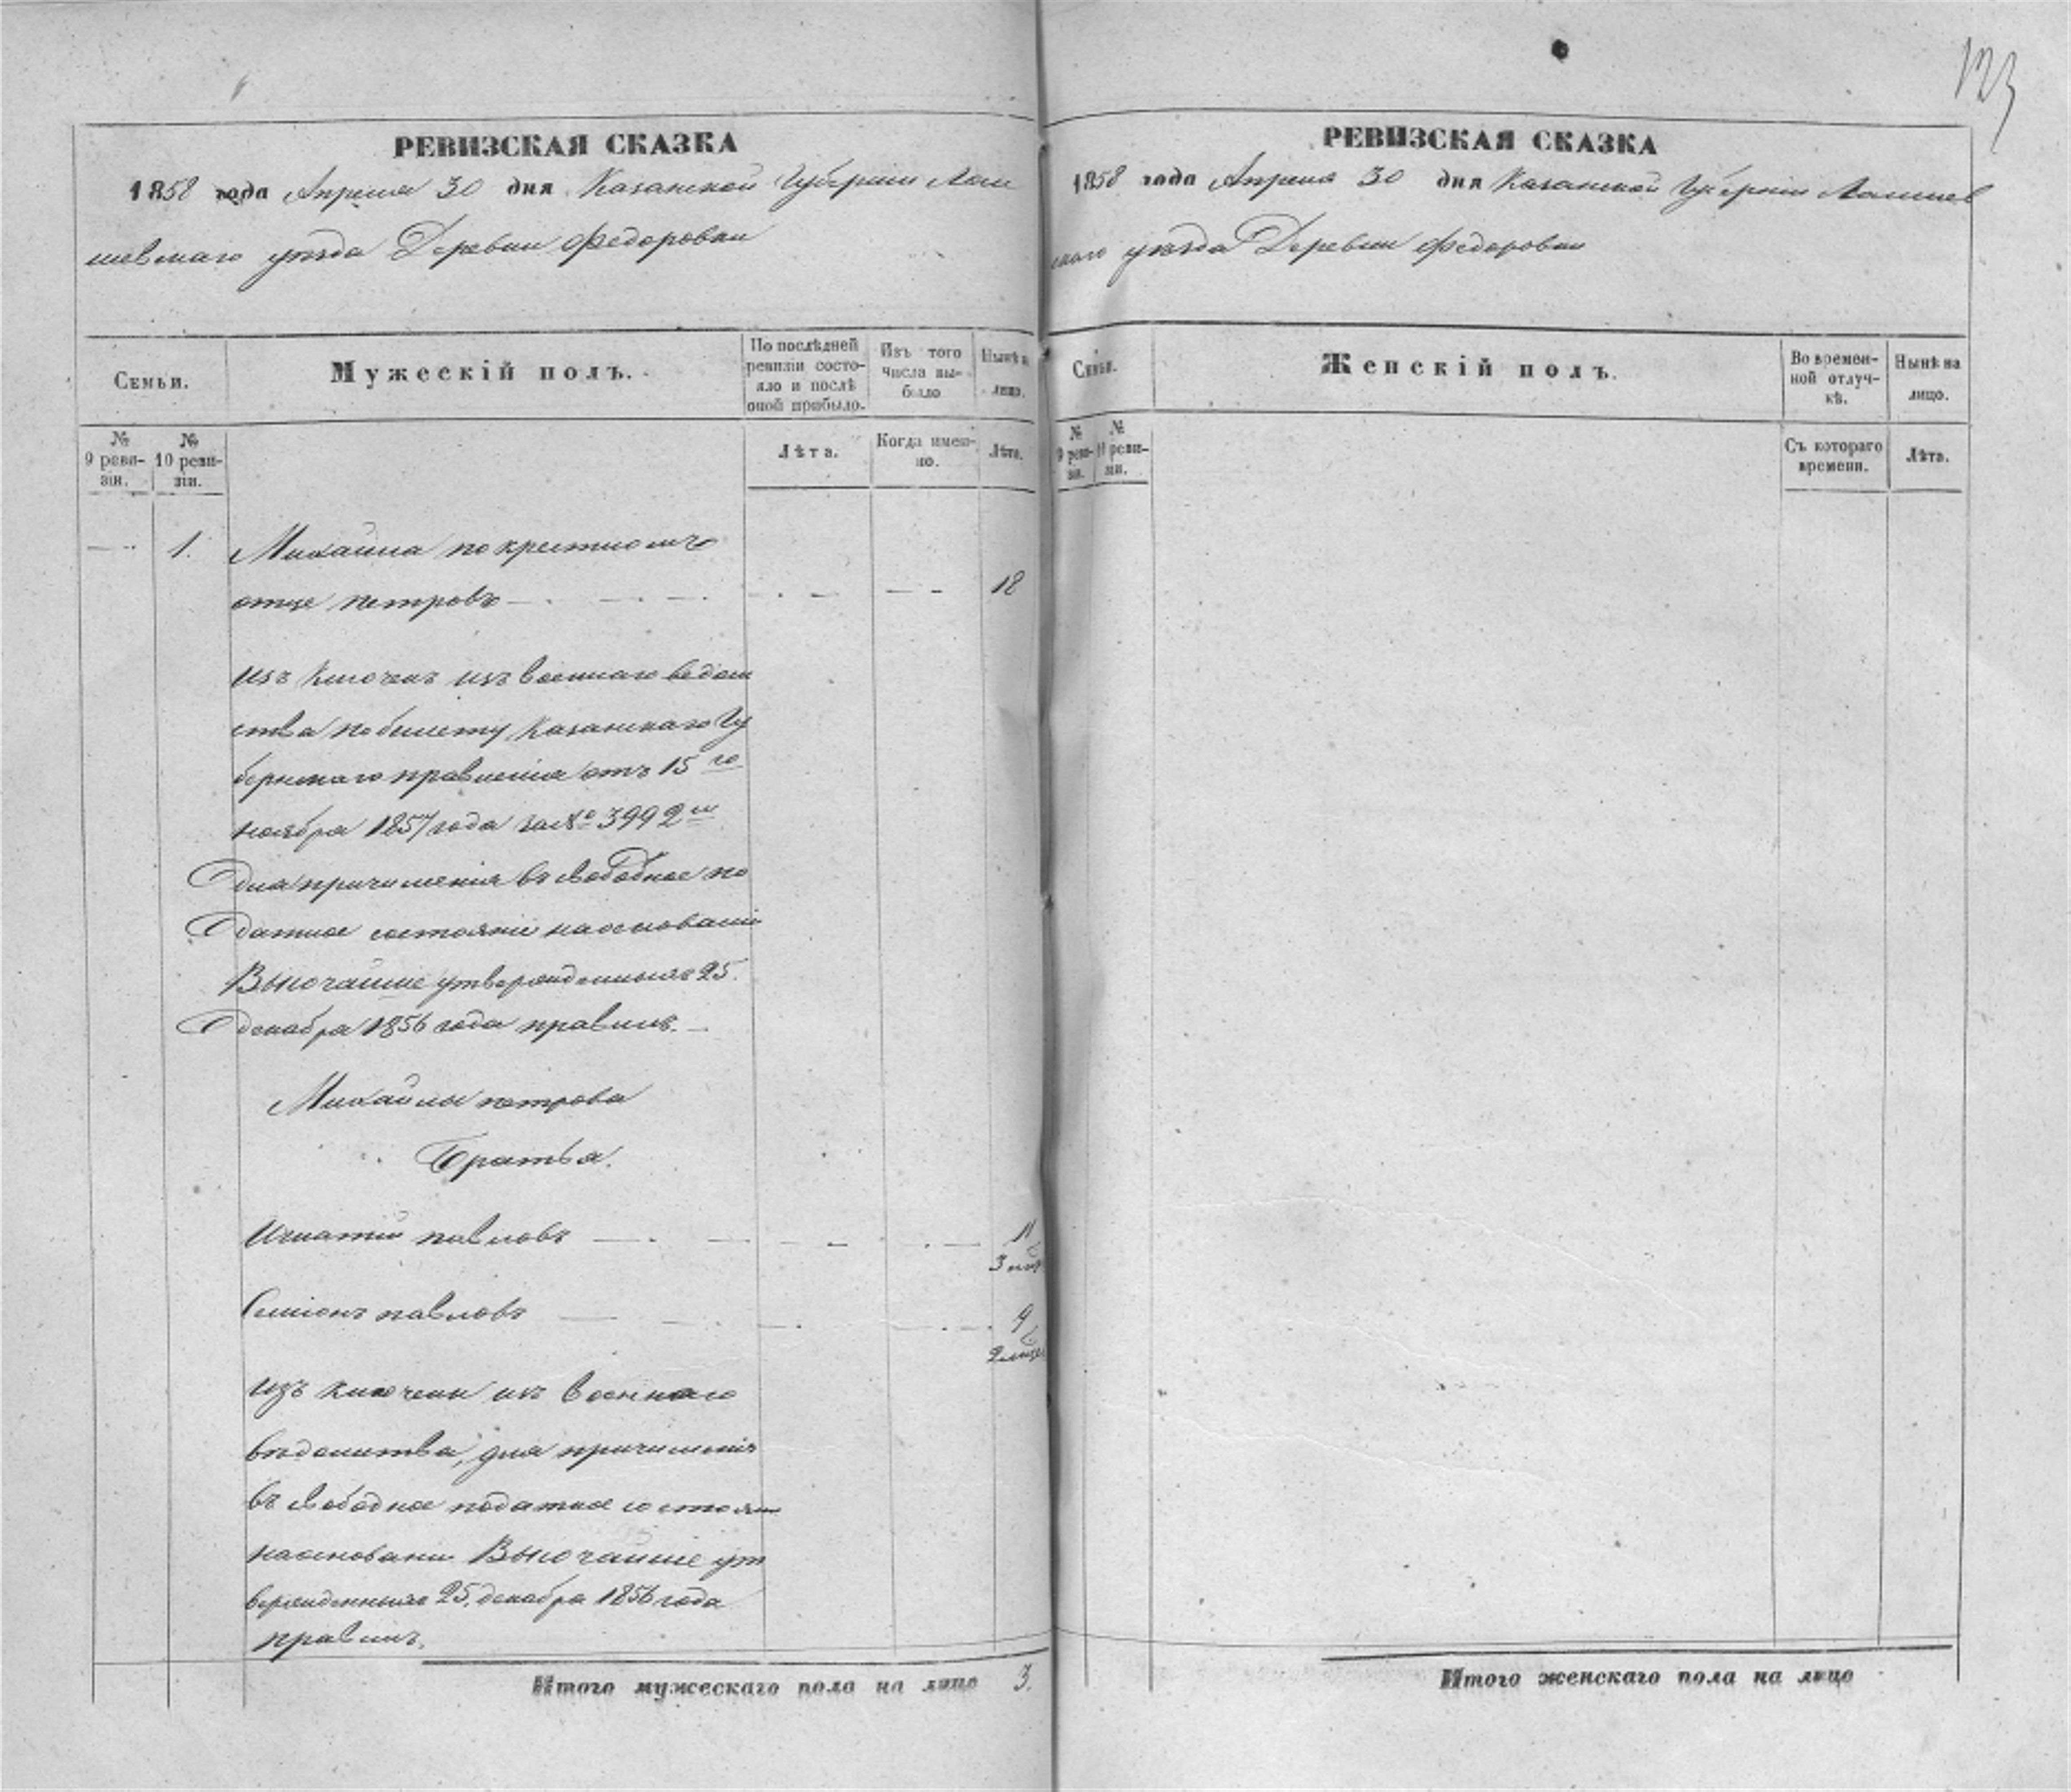 123
РЕВИЗСКАЯ СКАЗКА
1858 года Апреля 30 дня Казанской Губернiи Лаи
шевскаго уѣзда Деревни Федоровки
Семьи.
Мужескій полъ.
По послѣдней
ревизіи состо-
яло и послѣ
оной прибыло.
Изъ того
числа вы-
было
Нынѣ на
лицо.
№
9 реви-
зіи.
№
10 реви-
зіи.
Лѣта.
Когда имен-
но.
Лѣта.
1. Михаила по крестному
отце петровъ 18
Изъ ключенъ изъ военнаго ведом
ства по билету Казанскаго Гу
бернскаго правленія отъ 15го
ноября 1857 года за № 3992м
для причисленія въ свободное по
датное состояніе на основаніи
Высочайше утвержденныхъ 25.
декабря 1856 года правилъ.
Михайлы петрова
Братья.
Игнатій павловъ 11
3 мѣс
Семіонъ павловъ 9
2 мѣсе
Изъ ключены изъ военнаго
вѣдомства, для причисленія
въ свободное податное состоян
на основани Высочайше ут
вержденныхъ 25. декабря 1856 года
правилъ.
Итого мужескаго пола на лицо 3.
РЕВИЗСКАЯ СКАЗКА
1858 года Апреля 30 дня Казанской Губернiи Лаишев
скаго уѣзда Деревни Федоровки
Семьи.
Женскій полъ.
Во времен-
ной отлуч-
кѣ.
Нынѣ на
лицо.
№
9 реви-
зіи.
№
10 реви-
зіи.
Съ котораго
времени.
Лѣта.
Итого женскаго пола на лицо